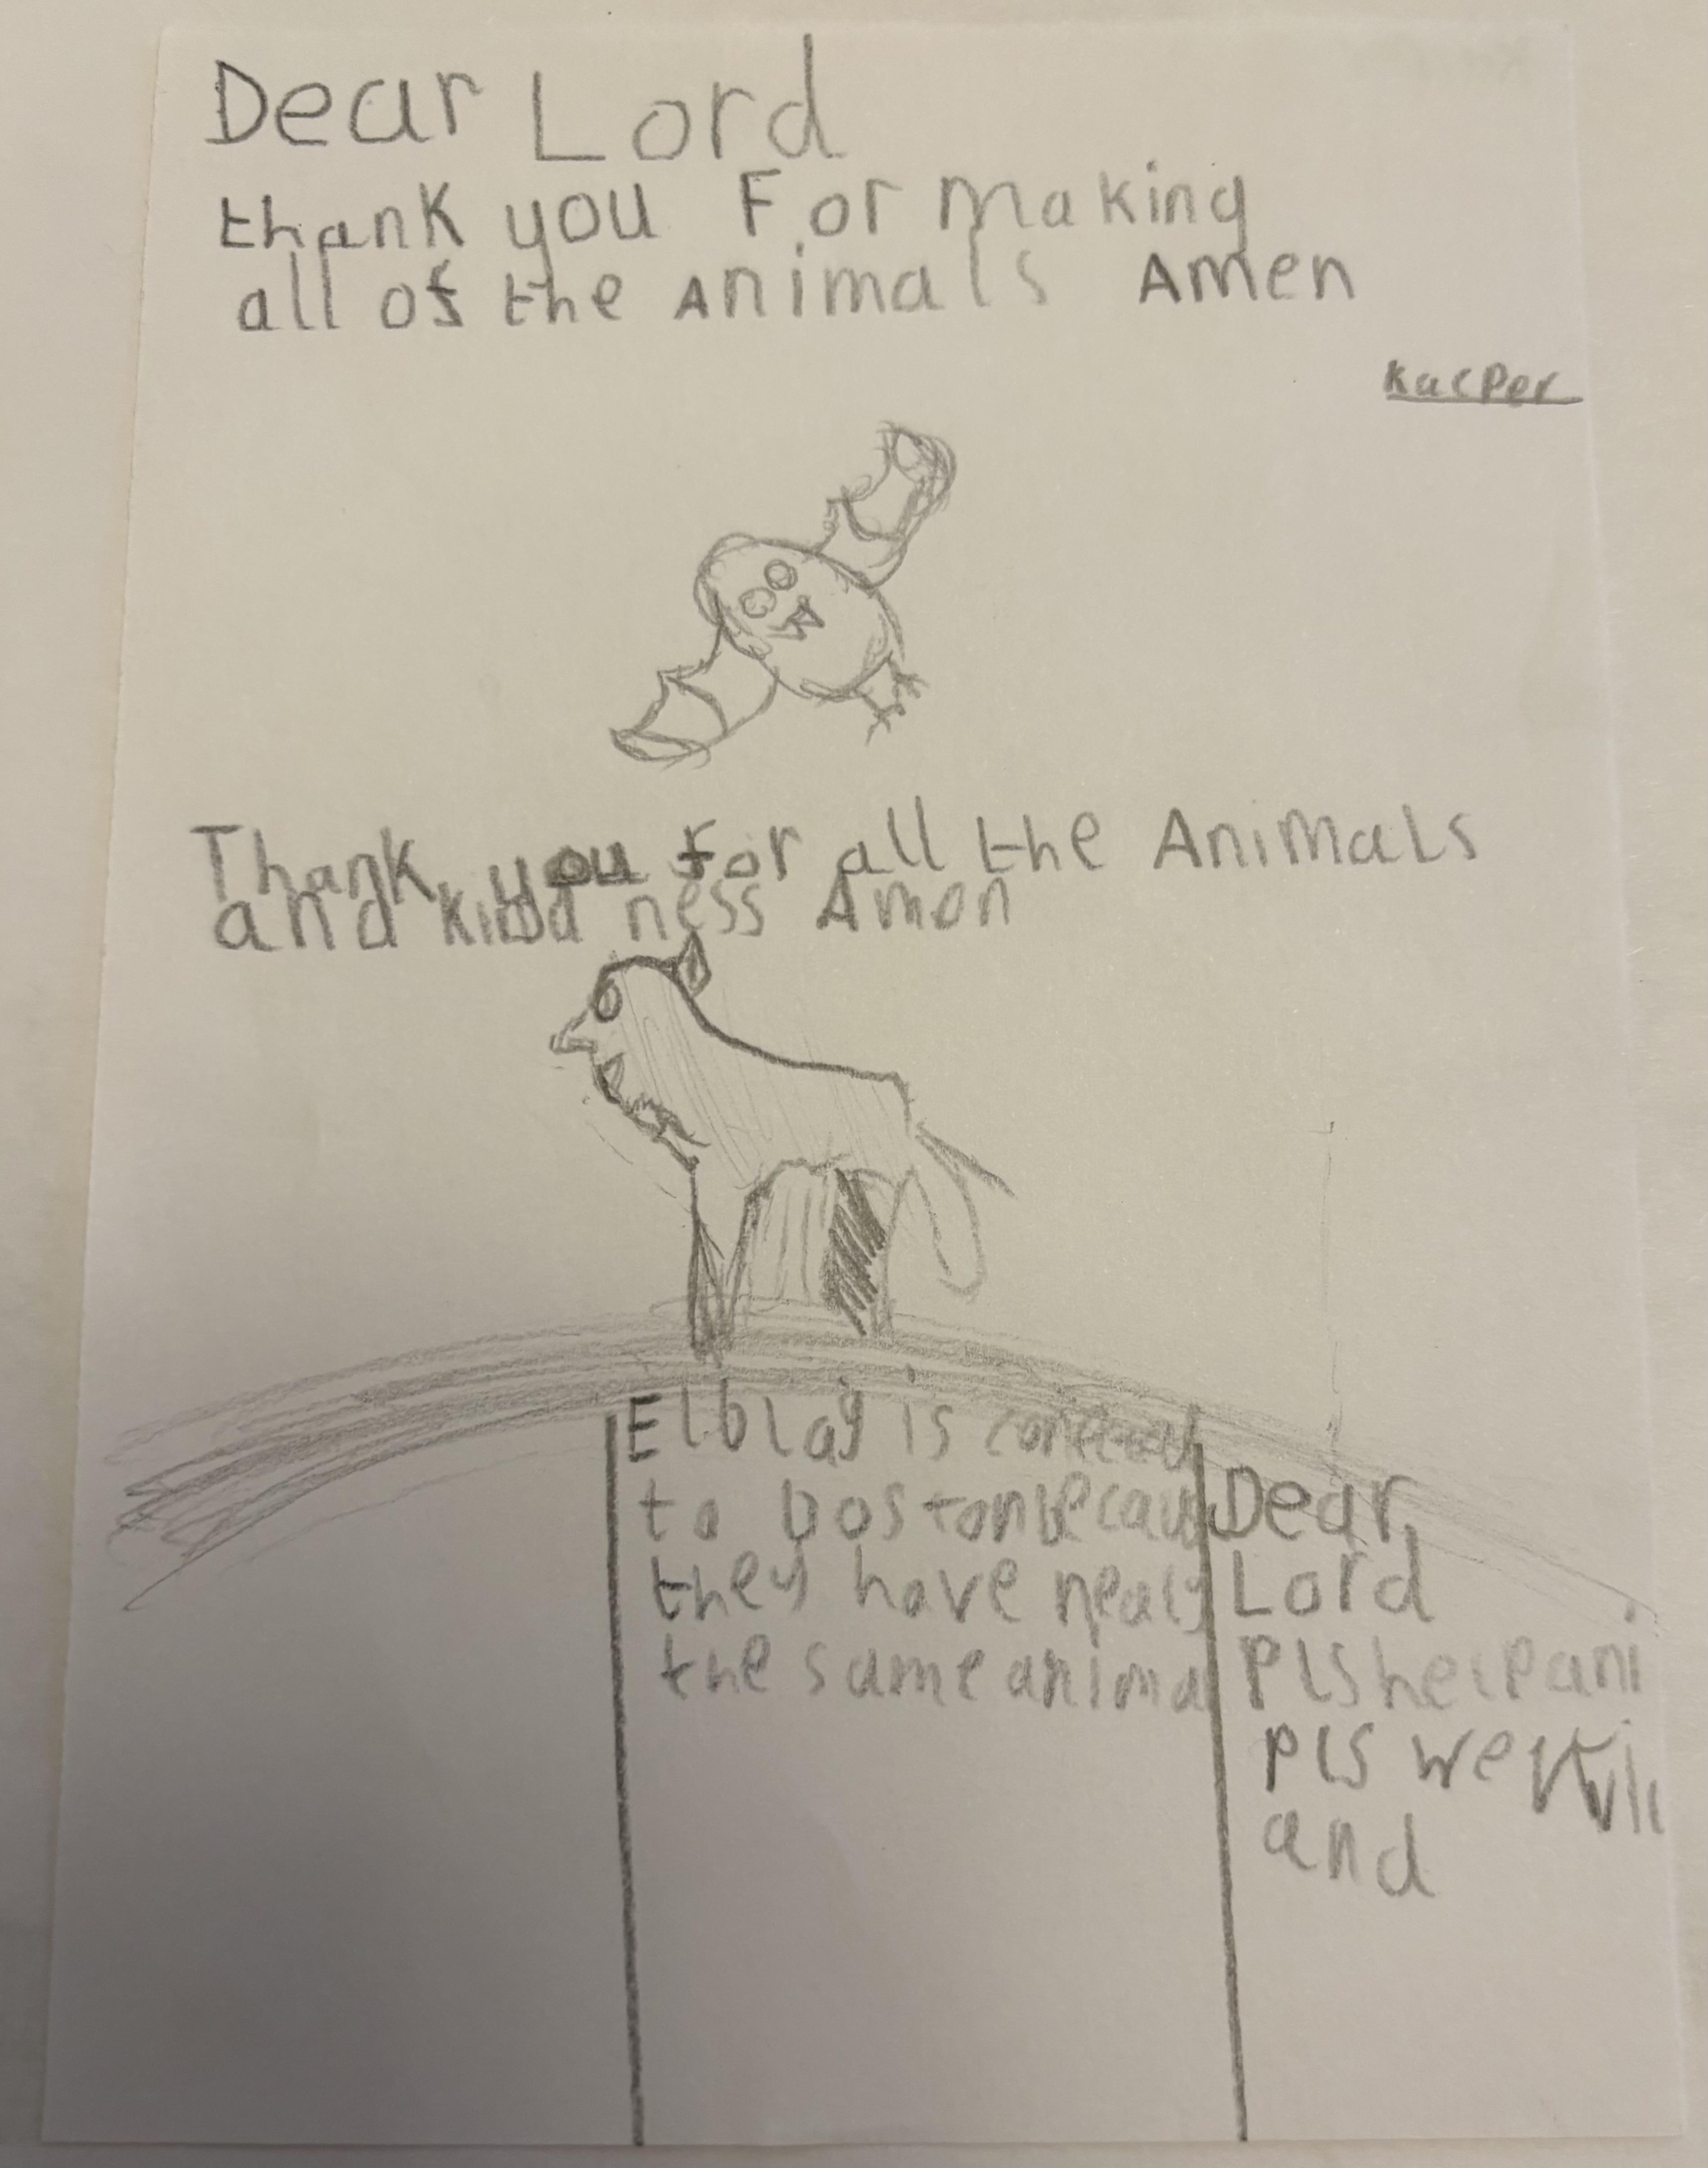 Dear Lord
thank you For making
all of the Animals Amen
Kacper
Thank you for all the Animals
and kindness Amen
Elblag is
to bostonbecau
they have nealy
the same anima
Dear
Lord
Pls help ani
Pls we kill
and